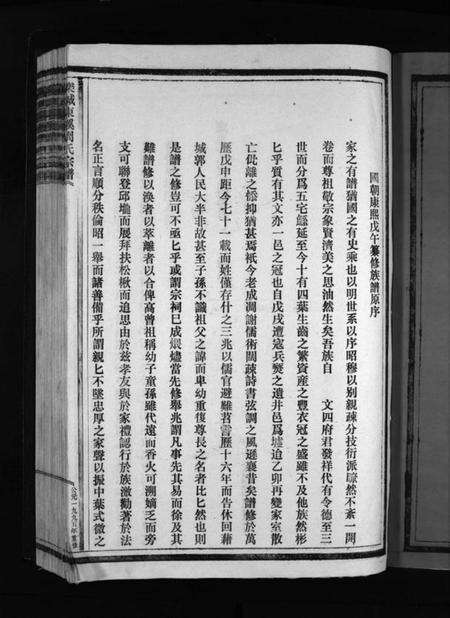 國朝康熙戊午纂修族譜原序
家之有譜猶國之有史乘也以明世系以序昭穆以別親疎分技衍派瞭然不紊一開
卷而尊祖敬宗象賢濟美之思油然生矣吾族自 文四府君發祥代有令德至三
世而分爲五宅緜延至今十有四葉生齒之繁資產之豐衣冠之盛雖不及他族然彬
匕乎質有其文亦一邑之冠也自戊戌遭寇兵燹之遺井邑爲墟迨乙卯再變家室散
亡仳離之慘抑猶甚焉祇今老成凋謝儒術闊疎詩書弦調之風遜襄昔矣譜修於萬
歷戊申距今七十一載而姓僅存什之三兆以儒官避難苕霅歷十六年而告休回藉
城郭人民大半非故甚至子孫不識祖父之諱而卑幼重復尊長之名者比匕然也則
是譜之修豈可不亟匕乎或謂宗祠已成煨燼當先修舉兆謂凡事先其易而徐及其
難譜修以渙者以萃離者以合俾高曾祖稱幼子童孫雖代遠而香火可溯嫡乏而旁
支可聯登邱壠而展拜扶松楸而追思由於兹孝友與於家禮認行於族激勸著於法
名正言順分秩倫昭一舉而諸善備乎所謂親匕不墜忠厚之家聲以振中葉式微之
樂城東溪周氏宗譜
公元一九九三年重修